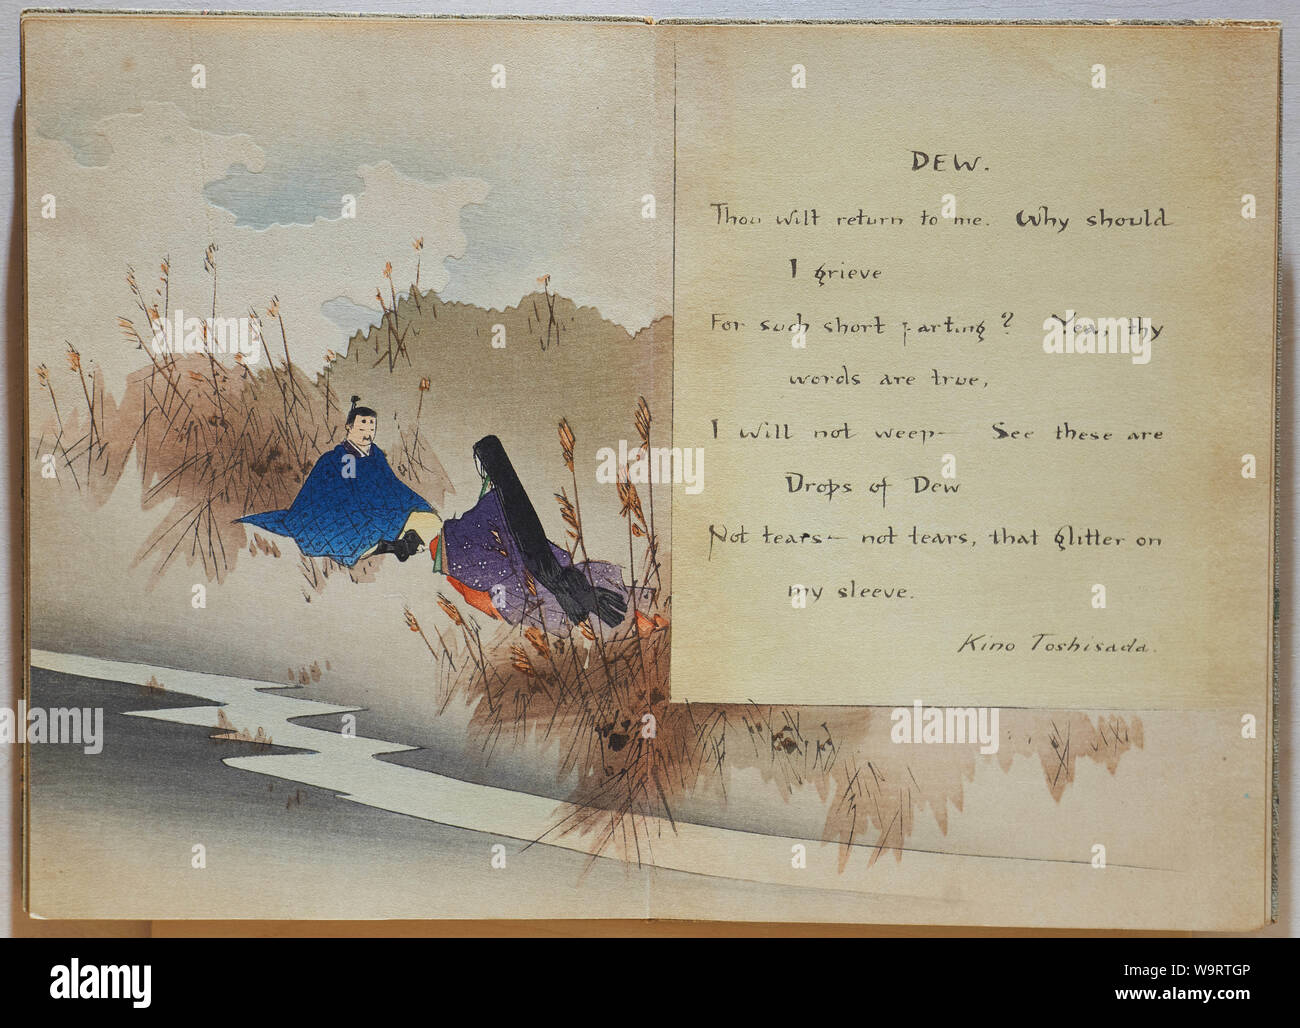 DEW.
Thou wilt return to me. Why should
I grieve
For such short parting? Yea, thy
words are true,
I will not weep— See these are
Drops of Dew
Not tears— not tears, that glitter on
my sleeve.
Kino Toshisada.
a a a a
a a a a
a alamy a a alamy
a a a a
a alamy a
a a a a
alamy a alamy a
a a a a
alamy
Image ID: W9RTGP
www.alamy.com